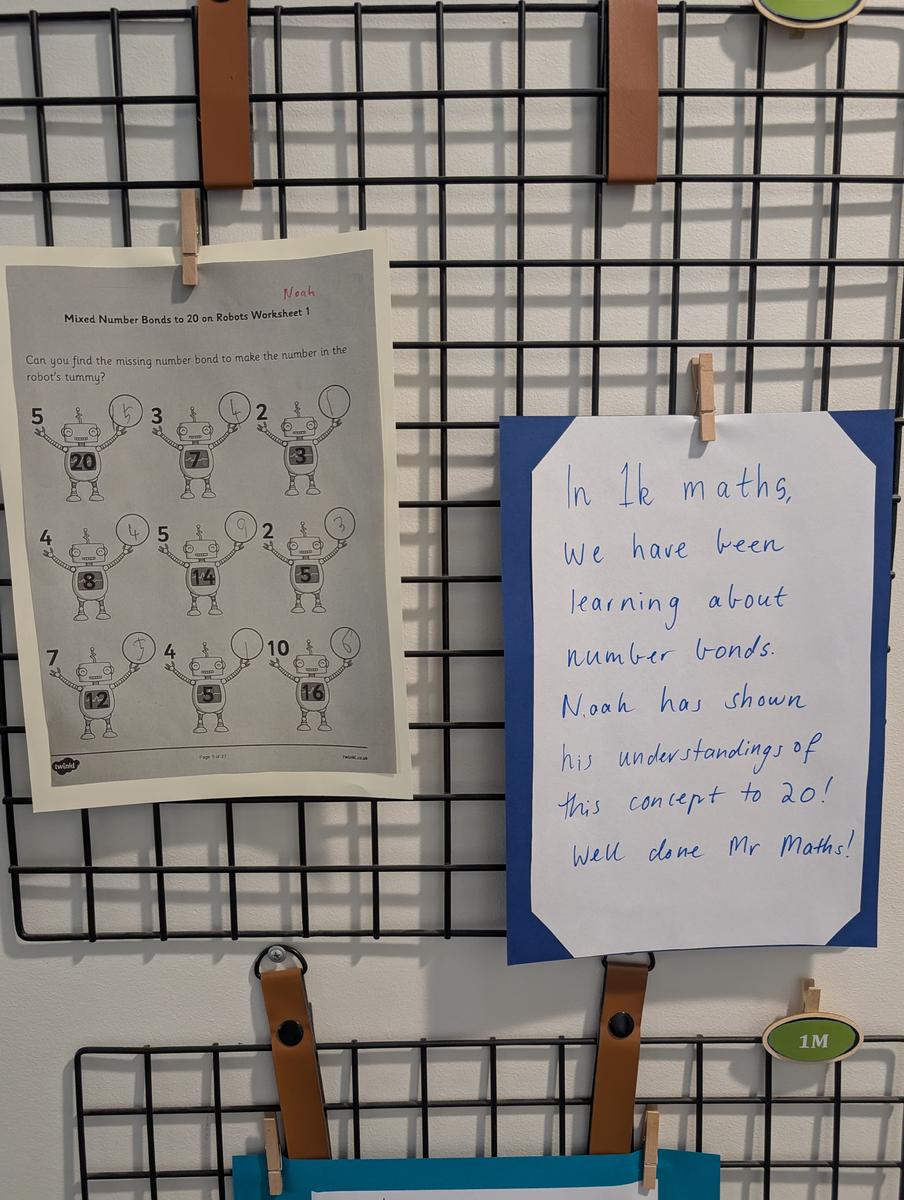 Noah
Mixed Number Bonds to 20 on Robots Worksheet 1
Can you find the missing number bond to make the number in the
robot's tummy?
5 15 3 4 2 1
20 7 3
4 4 5 9 2 3
8 14 5
7 5 4 1 10 6
12 5 16
twinkl Page 9 of 27 twinkl.co.uk
In 1k maths,
We have been
learning about
number bonds.
Noah has shown
his understandings of
this concept to 20!
Well done Mr Maths!
1M